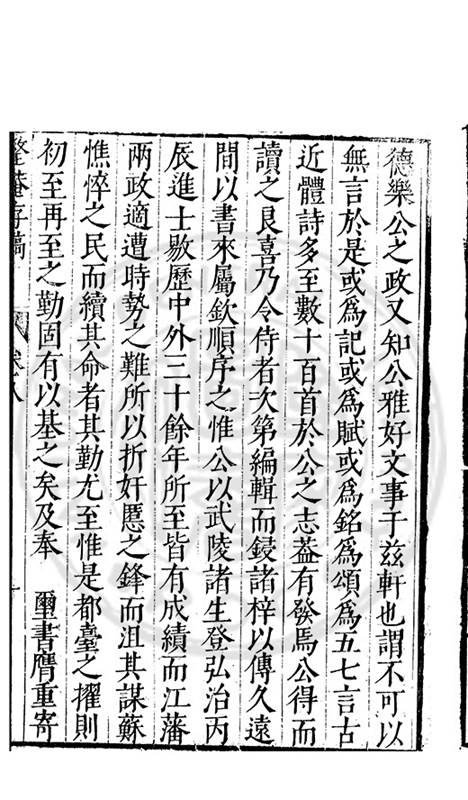 德樂公之政又知公雅好文事于兹軒也謂不可以
無言於是或爲記或爲賦或爲銘爲頌爲五七言古
近體詩多至數十百首於公之志葢有發焉公得而
讀之良喜乃令侍者次第編輯而鋟諸梓以傳久遠
間以書來屬欽順序之惟公以武陵諸生登弘治丙
辰進士敭歷中外三十餘年所至皆有成績而江藩
兩政適遭時勢之難所以折奸慝之鋒而沮其謀蘇
憔悴之民而續其命者其勤尤至惟是都臺之擢則
初至再至之勤固有以基之矣及奉　璽書膺重寄
整菴存稿　卷八